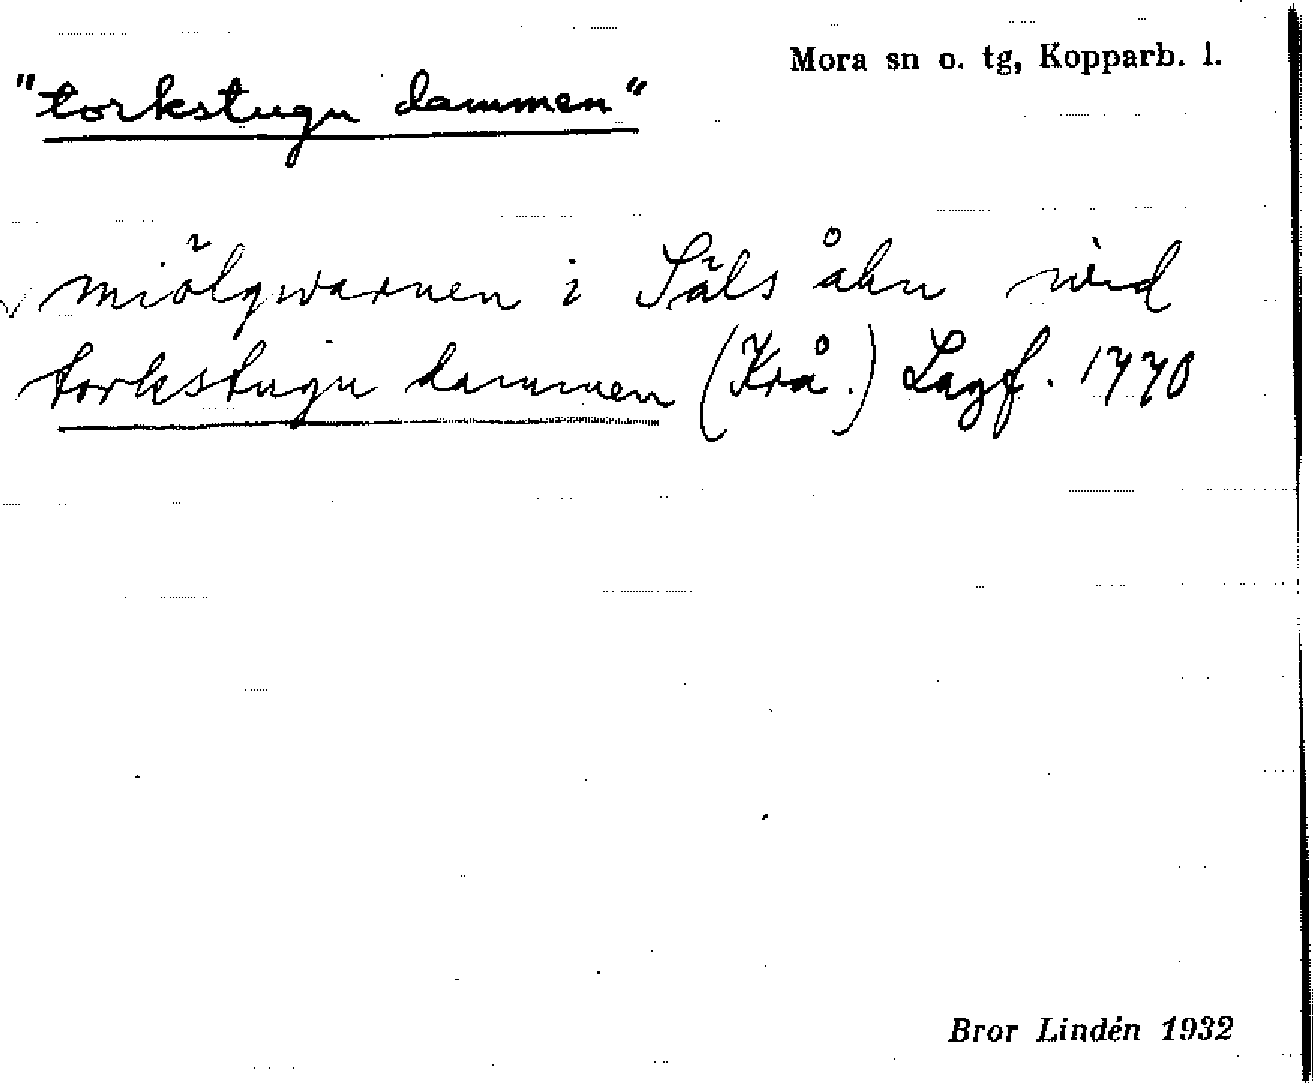 Mora sn o. tg, Kopparb. l.
"torkstugu dammen"
miölqwarnen i Säls åhn wid
torkstugu dammen (Krå.) Lagf. 1770
Bror Lindén 1932